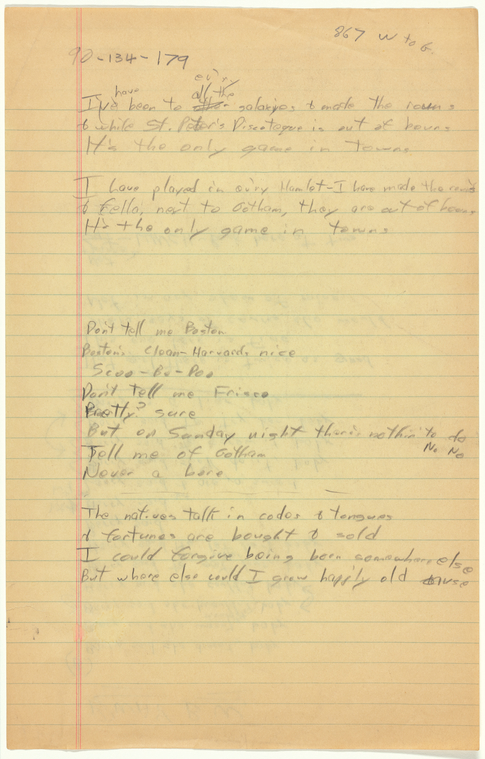 867 W to G.
90-134-179
have ev'ry
all the
I've been to galaxies & made the rouns
& while St. Peter's Discotogue is out of bouns
It's the only game in towns
I have played in ev'ry Hamlet-I have made the rouns
& Fella, next to Gotham, they are out of bouns
It's the only game in towns
Don't tell me Boston
Boston's Clean-Harvards nice
Scoo-Be-Poo
Don't tell me Frisco
Pretty? sure
But on Sunday night there's nothin' to do
No No
Tell me of Gotham
Never a bore
The natives talk in codes & tongues
& fortunes are bought & sold
I could forgive being born somewhere else
But where else could I grow happily old